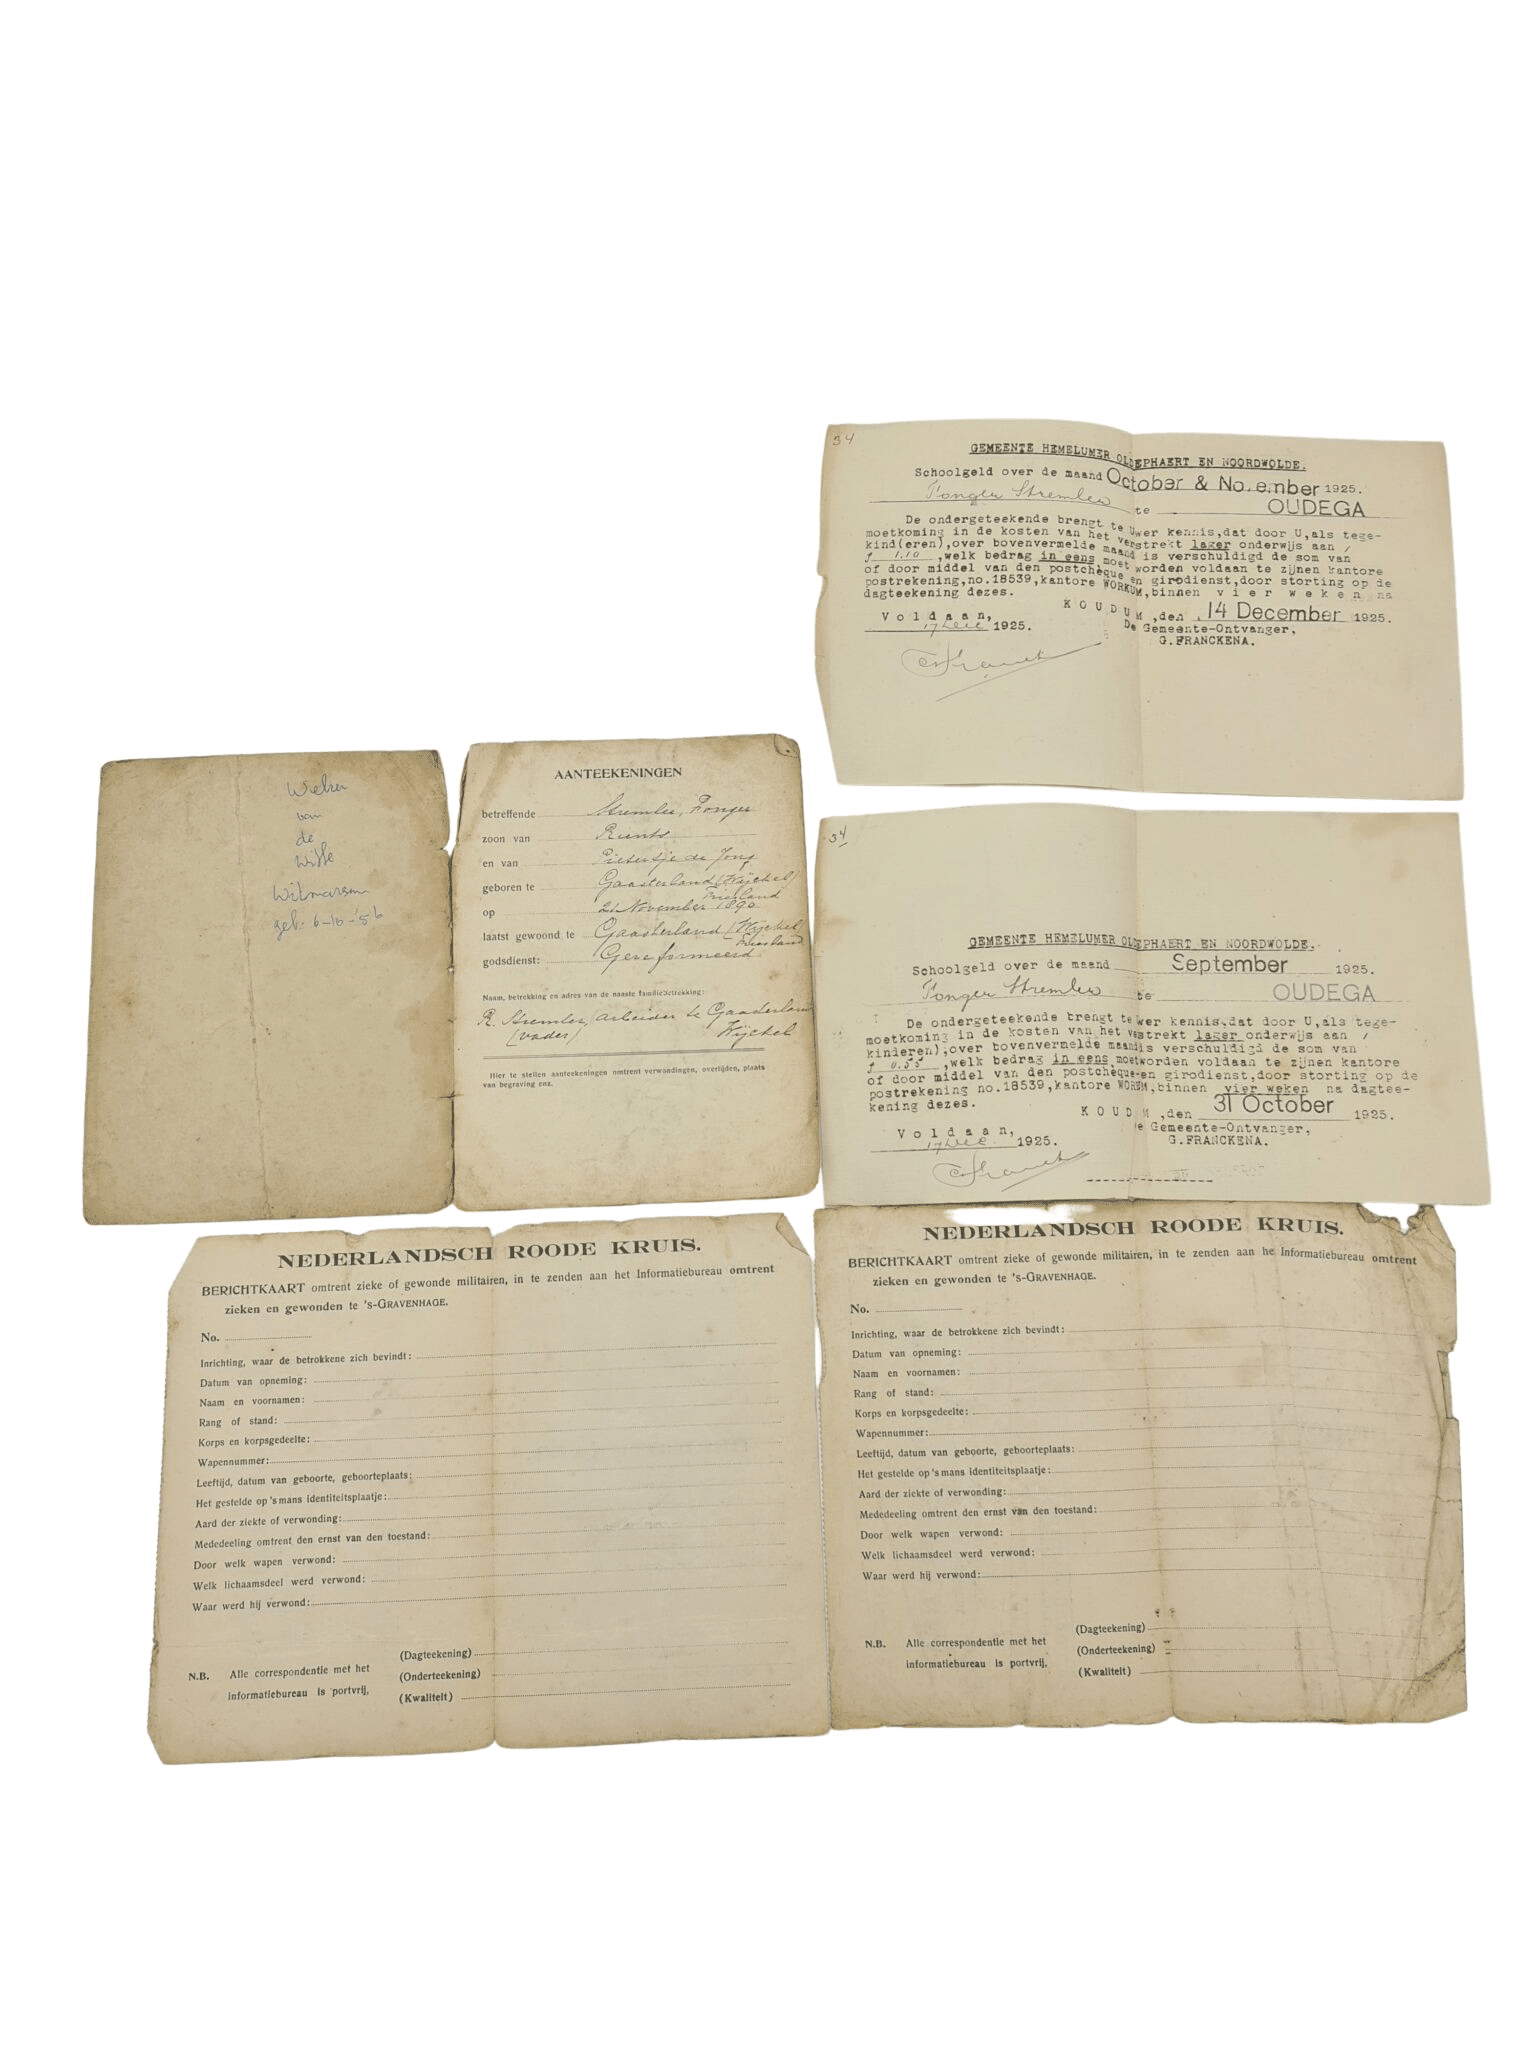 34
GEMEENTE HEMELUMER OLDEPHAERT EN NOORDWOLDE.
Schoolgeld over de maand October & November 1925.
Fonger Stremler te OUDEGA
De ondergeteekende brengt te Uwer kennis,dat door U,als tege-
moetkoming in de kosten van het verstrekt lager onderwijs aan 1
kind(eren),over bovenvermelde maand is verschuldigd de som van
f 1.10 ,welk bedrag in eens moet worden voldaan te zijnen kantore
of door middel van den postchèque en girodienst,door storting op de
postrekening,no.18539,kantore WORKUM,binnen vier weken na
dagteekening dezes.
KOUDUM,den 14 December 1925.
Voldaan,
17 Dec 1925.
De Gemeente-Ontvanger,
G.FRANCKENA.
Welzen
van
de
Witte
Witmarsum
geb. 6-10-'56
AANTEEKENINGEN
betreffende Stremler, Fonger
zoon van Rients
en van Pietertje de Jong
geboren te Gaasterland (Wijckel)
Friesland
op 21 November 1890
laatst gewoond te Gaasterland (Wijckel)
Friesland
godsdienst: Gereformeerd
Naam, betrekking en adres van de naaste familiebetrekking:
R. Stremler, arbeider te Gaasterland
(vader) Wijckel
Hier te stellen aanteekeningen omtrent verwondingen, overlijden, plaats
van begraving enz.
34
GEMEENTE HEMELUMER OLDEPHAERT EN NOORDWOLDE.
Schoolgeld over de maand September 1925.
Fonger Stremler te OUDEGA
De ondergeteekende brengt te wer kennis,dat door U,als tege-
moetkoming in de kosten van het verstrekt lager onderwijs aan 1
kinderen),over bovenvermelde maand is verschuldigd de som van
f 0.55 ,welk bedrag in eens moet worden voldaan te zijnen kantore
of door middel van den postchèque-en girodienst,door storting op de
postrekening no.18539,kantore WORKUM,binnen vier weken na dagtee-
kening dezes.
KOUDUM,den 31 October 1925.
Voldaan,
17 Dec. 1925.
De Gemeente-Ontvanger,
G.FRANCKENA.
NEDERLANDSCH ROODE KRUIS.
BERICHTKAART omtrent zieke of gewonde militairen, in te zenden aan het Informatiebureau omtrent
zieken en gewonden te 's-GRAVENHAGE.
No.
Inrichting, waar de betrokkene zich bevindt:
Datum van opneming:
Naam en voornamen:
Rang of stand:
Korps en korpsgedeelte:
Wapennummer:
Leeftijd, datum van geboorte, geboorteplaats:
Het gestelde op 's mans identiteitsplaatje:
Aard der ziekte of verwonding:
Mededeeling omtrent den ernst van den toestand:
Door welk wapen verwond:
Welk lichaamsdeel werd verwond:
Waar werd hij verwond:
(Dagteekening)
N.B. Alle correspondentie met het
(Onderteekening)
informatiebureau is portvrij,
(Kwaliteit)
NEDERLANDSCH ROODE KRUIS.
BERICHTKAART omtrent zieke of gewonde militairen, in te zenden aan he Informatiebureau omtrent
zieken en gewonden te 's-GRAVENHAGE.
No.
Inrichting, waar de betrokkene zich bevindt:
Datum van opneming:
Naam en voornamen:
Rang of stand:
Korps en korpsgedeelte:
Wapennummer:
Leeftijd, datum van geboorte, geboorteplaats:
Het gestelde op 's mans identiteitsplaatje:
Aard der ziekte of verwonding:
Mededeeling omtrent den ernst van den toestand:
Door welk wapen verwond:
Welk lichaamsdeel werd verwond:
Waar werd hij verwond:
(Dagteekening)
N.B. Alle correspondentie met het
(Onderteekening)
informatiebureau is portvrij,
(Kwaliteit)